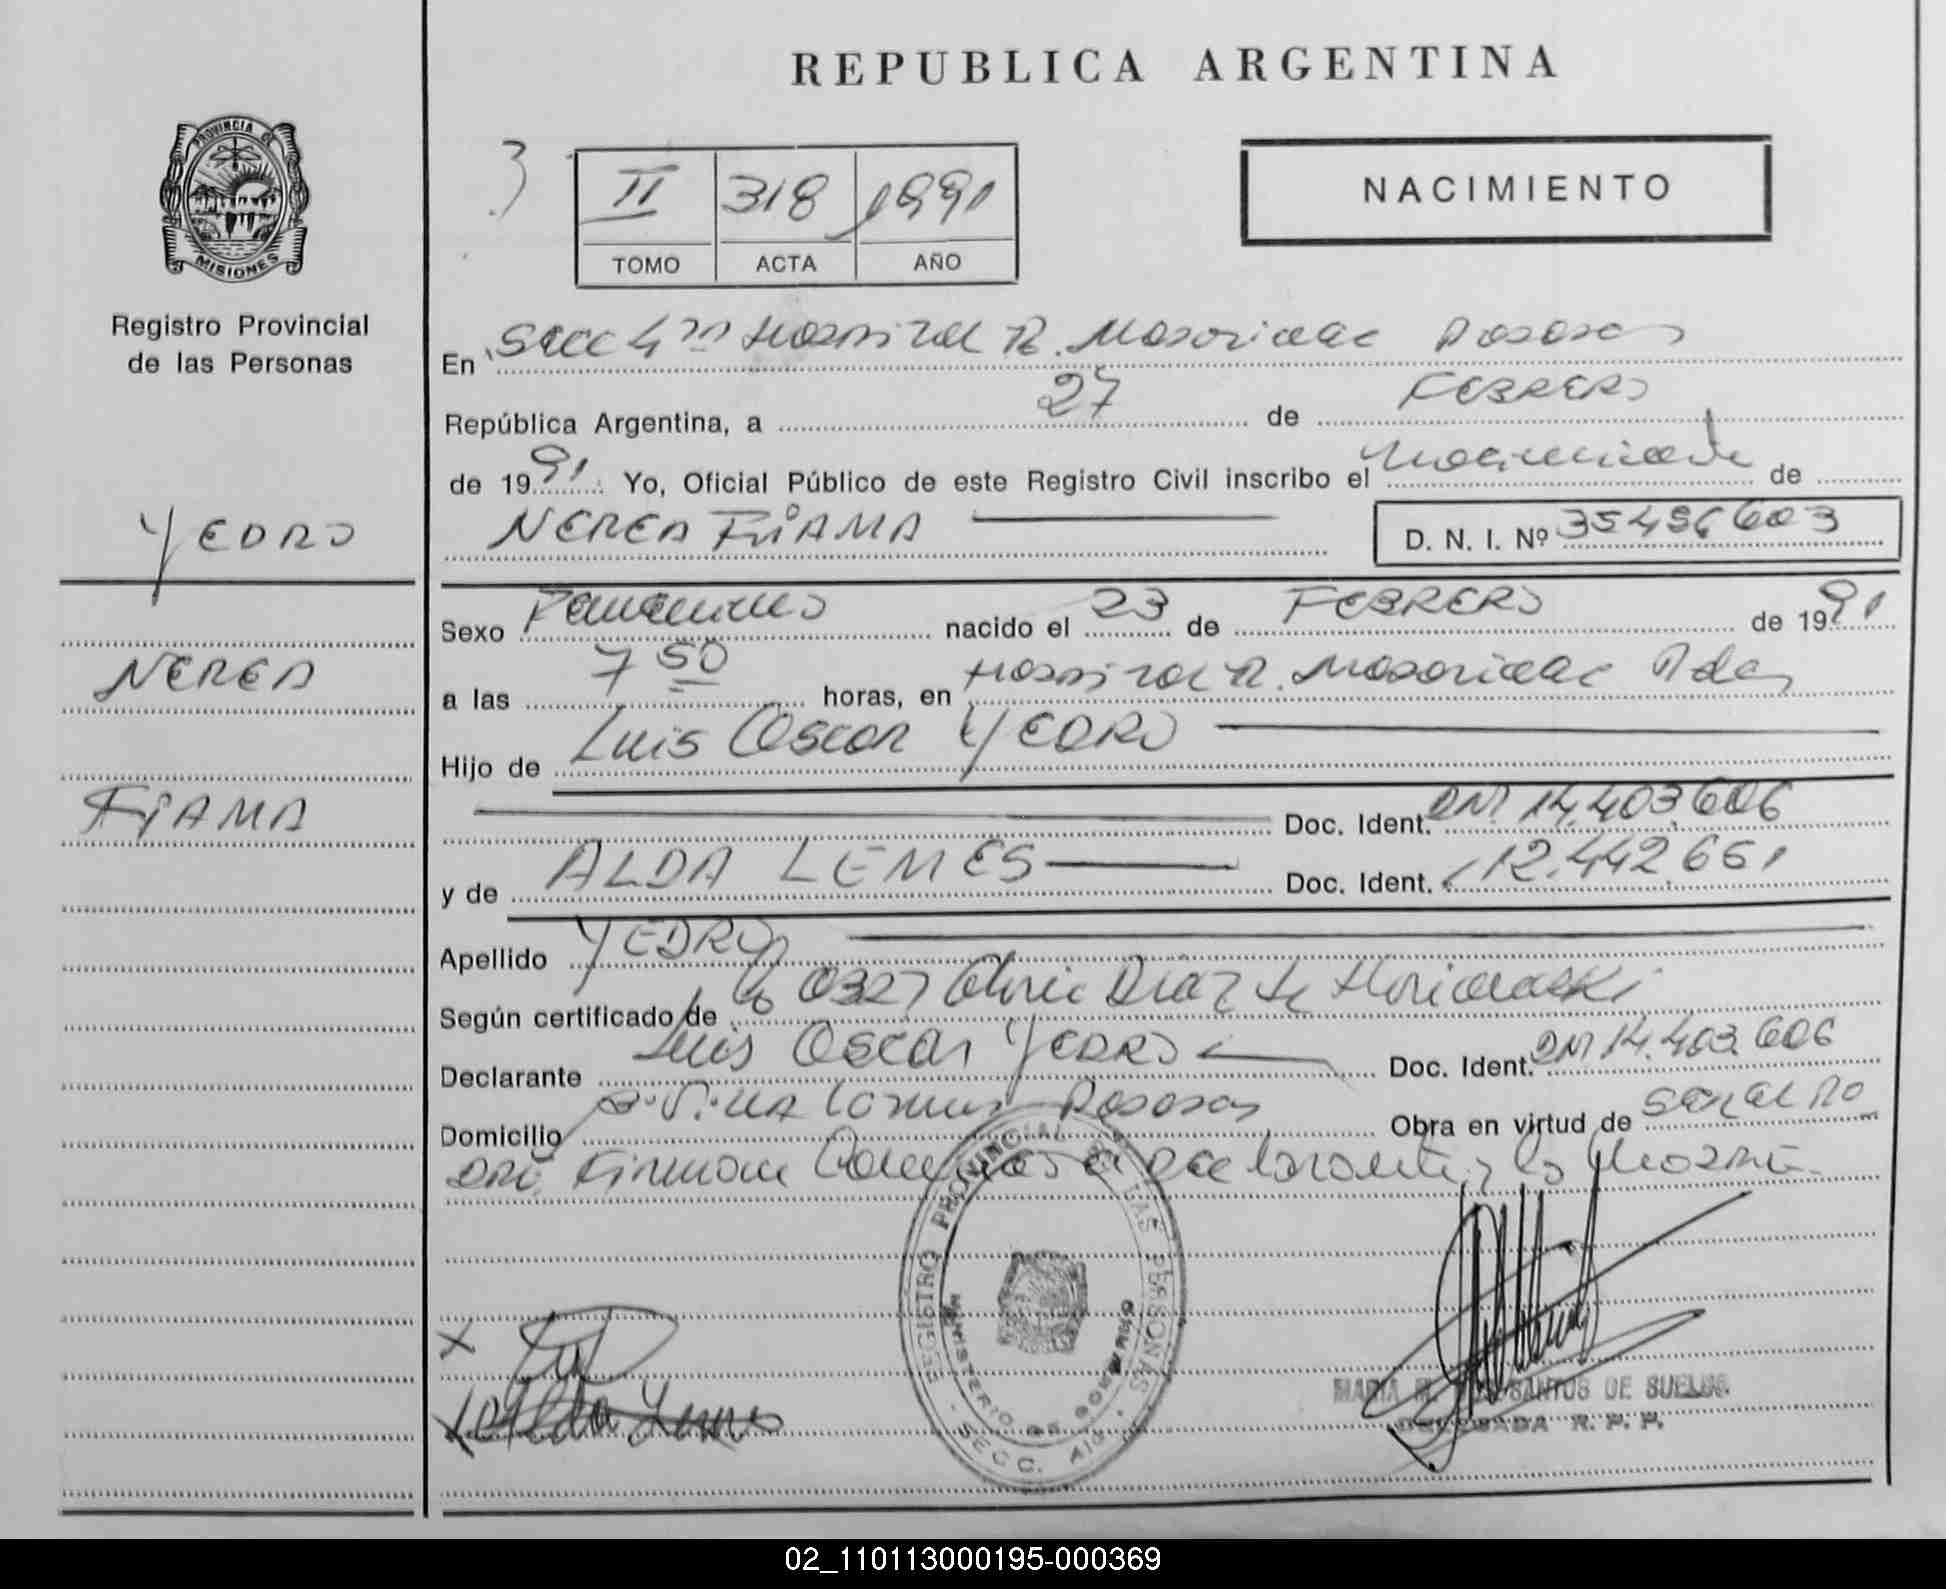 REPUBLICA ARGENTINA
PROVINCIA DE
MISIONES
Registro Provincial
de las Personas
II 318 1991
TOMO ACTA AÑO
NACIMIENTO
En Secc 4ta Hospital R. Madariaga Posadas
República Argentina, a 27 de FEBRERO
de 1991. Yo, Oficial Público de este Registro Civil inscribo el nacimiento de
NEREA FIAMA D. N. I. Nº 35456603
YEDRO
NEREA
FIAMA
Sexo Femenino nacido el 23 de FEBRERO de 1991
a las 7 50 horas, en Hospital R. Madariaga Pdas
Hijo de Luis Oscar YEDRO
Doc. Ident. DNI 14.403.606
y de ALDA LEMES Doc. Ident. 12.442.661
Apellido YEDRO
Según certificado de Díaz de
Declarante Luis Oscar YEDRO Doc. Ident. DNI 14.403.606
Domicilio Posadas Obra en virtud de
Firman declarante y la
REGISTRO PROVINCIAL DE LAS PERSONAS
MINISTERIO DE GOBIERNO
SECC.
Alda Lemes
MARIA M. SANTOS DE SUELDO
DELEGADA R. P. P.
02_110113000195-000369